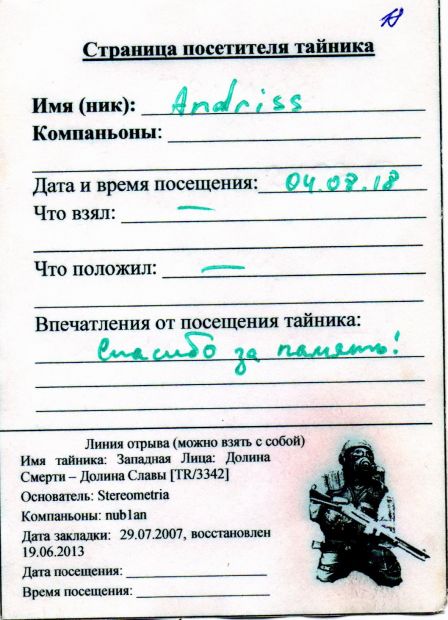 18
Страница посетителя тайника
Имя (ник): Andriss
Компаньоны:
Дата и время посещения: 04.08.18
Что взял: —
Что положил: —
Впечатления от посещения тайника:
Спасибо за память!
Линия отрыва (можно взять с собой)
Имя тайника: Западная Лица: Долина
Смерти – Долина Славы [TR/3342]
Основатель: Stereometria
Компаньоны: nub1an
Дата закладки: 29.07.2007, восстановлен
19.06.2013
Дата посещения:
Время посещения: